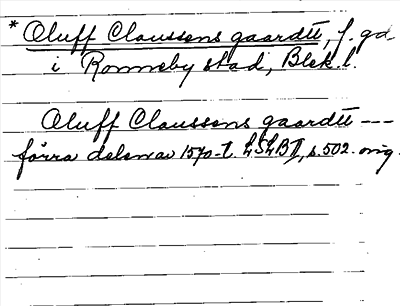 * Oluff Claussens gaardtt, f. gd
i Ronneby stad, Blek. l.
Oluff Claussens gaardtt ---
förra delen av 1570-t. LSLBII, s. 502. orig.